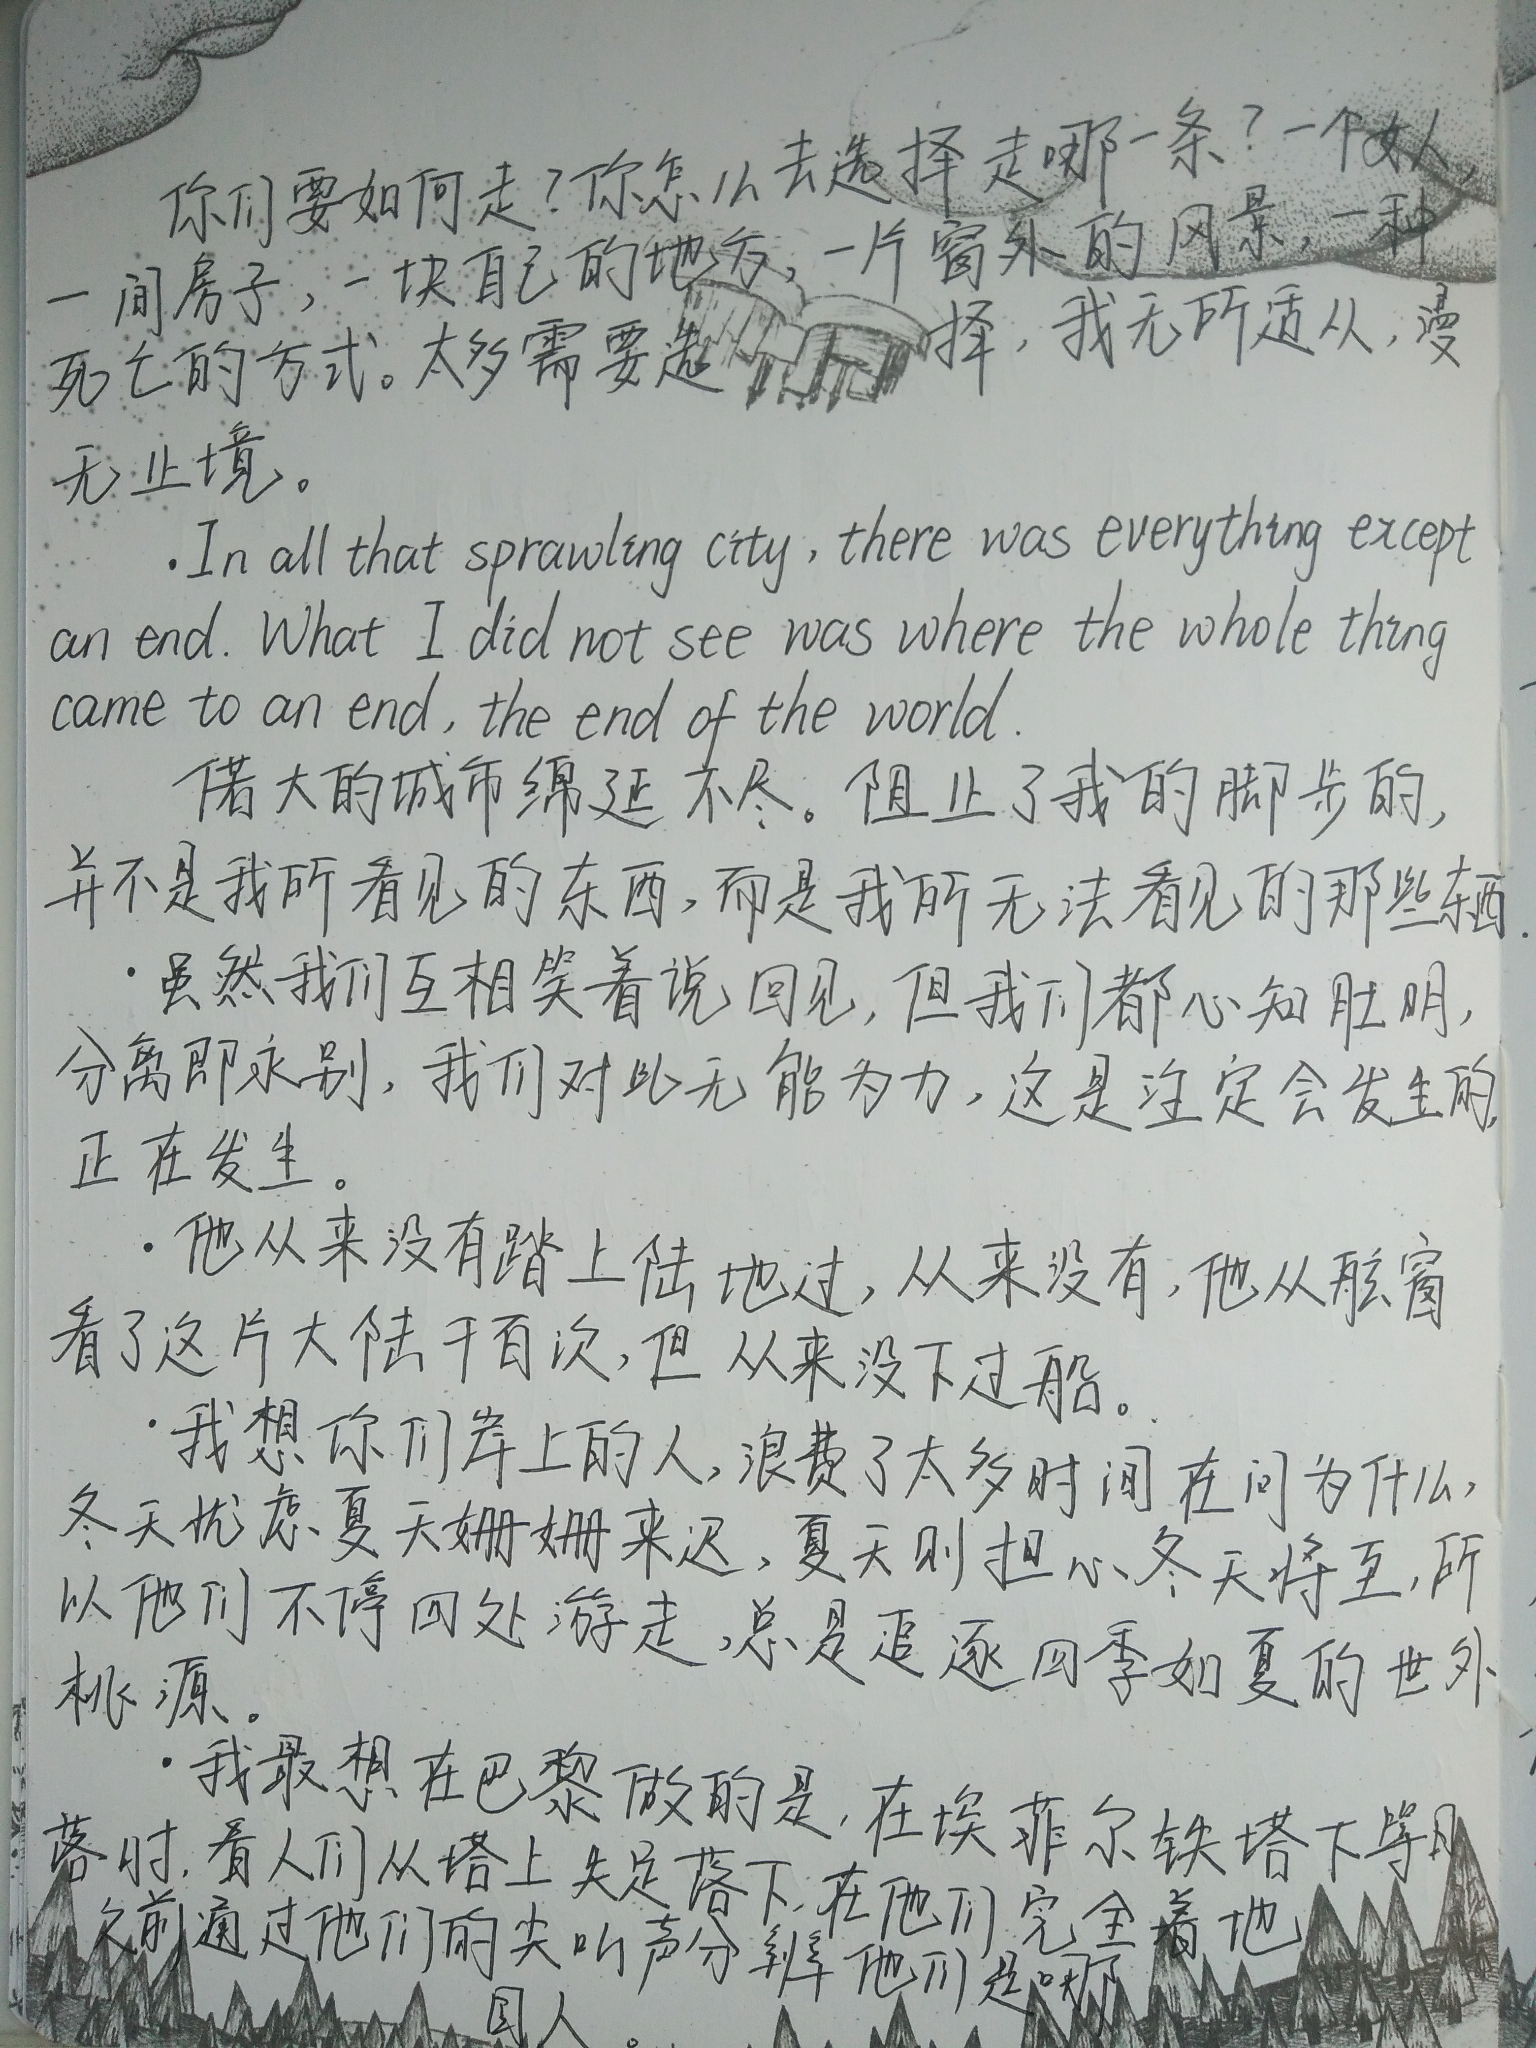 你们要如何走?你怎么去选择走哪一条?一个女人,
一间房子,一块自己的地方,一片窗外的风景,一种
死亡的方式。太多需要选择,我无所适从,漫
无止境。
·In all that sprawling city, there was everything except
an end. What I did not see was where the whole thing
came to an end, the end of the world.
偌大的城市绵延不尽。阻止了我的脚步的,
并不是我所看见的东西,而是我所无法看见的那些东西.
·虽然我们互相笑着说回见,但我们都心知肚明,
分离即永别,我们对此无能为力,这是注定会发生的,
正在发生。
·他从来没有踏上陆地过,从来没有,他从舷窗
看了这片大陆千百次,但从来没下过船。
·我想你们岸上的人,浪费了太多时间在问为什么,
冬天忧虑夏天姗姗来迟,夏天则担心冬天将至,所
以他们不停四处游走,总是追逐四季如夏的世外
桃源。
·我最想在巴黎做的是,在埃菲尔铁塔下等日
落时,看人们从塔上失足落下,在他们完全着地
之前通过他们的尖叫声分辨他们是哪
国人。